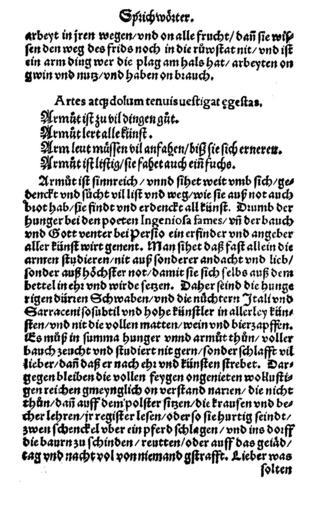 Sprichwörter.
arbeyt in jren wegen/ vnd on alle frucht/ dañ sie wis-
sen den weg des frids noch in die růwstat nit/ vnd ist
ein arm ding wer die plag am hals hat/ arbeyten on
gwin vnd nutz/ vnd haben on brauch.
Artes atq; dolum tenuis vestigat egestas.
Armůt ist zu vil dingen gůt.
Armůt lert alle künst.
Arm leut müssen vil anfahen/ biß sie sich erneren.
Armůt ist listig/ sie fahet auch ein fuchs.
Armůt ist sinnreich/ vnnd sihet weit vmb sich/ ge-
denckt vnd sücht vil list vnd weg/ wie sie auf not auch
brot hab/ sie findt vnd erdenckt all künst. Dumb der
hunger bei den poeten Ingeniosa fames/ vñ der bauch
vnd Gott venter bei Persio ein erfinder vnd angeber
aller künst wirt genent. Man sihet daß fast allein die
armen studieren/ nit auß sonderer andacht vnd lieb/
sonder auß höchster not/ damit sie sich selbs auß dem
bettel in ehr vnd wirde setzen. Daher seind die hunge
rigen dürren Schwaben/ vnd die nüchtern Itali vnd
Sarraceni so subtil vnd hohe künstler in allerley kün-
sten/ vnd nit die vollen matten/ wein vnd bierzapffen.
Es můß in summa hunger vnnd armůt thůn/ voller
bauch zeucht vnd studiert nit gern/ sonder schlafft vil
lieber/ dañ daß er nach ehr vnd künsten strebet. Dar-
gegen bleiben die vollen feygen ongenieten wollusti-
gen reichen gmeynglich on verstand narren/ die nicht
thůn/ dañ auff dem polster sitzen/ die krausen vnd be-
cher lehren/ jr register lesen/ oder so sie hurtig seindt/
zwen schenckel vber ein pferd schlagen/ vnd ins dorff
die baurn zu schinden/ reutten/ oder auff das geiäd/
tag vnd nacht vol von niemand gstrafft. Lieber was
solten